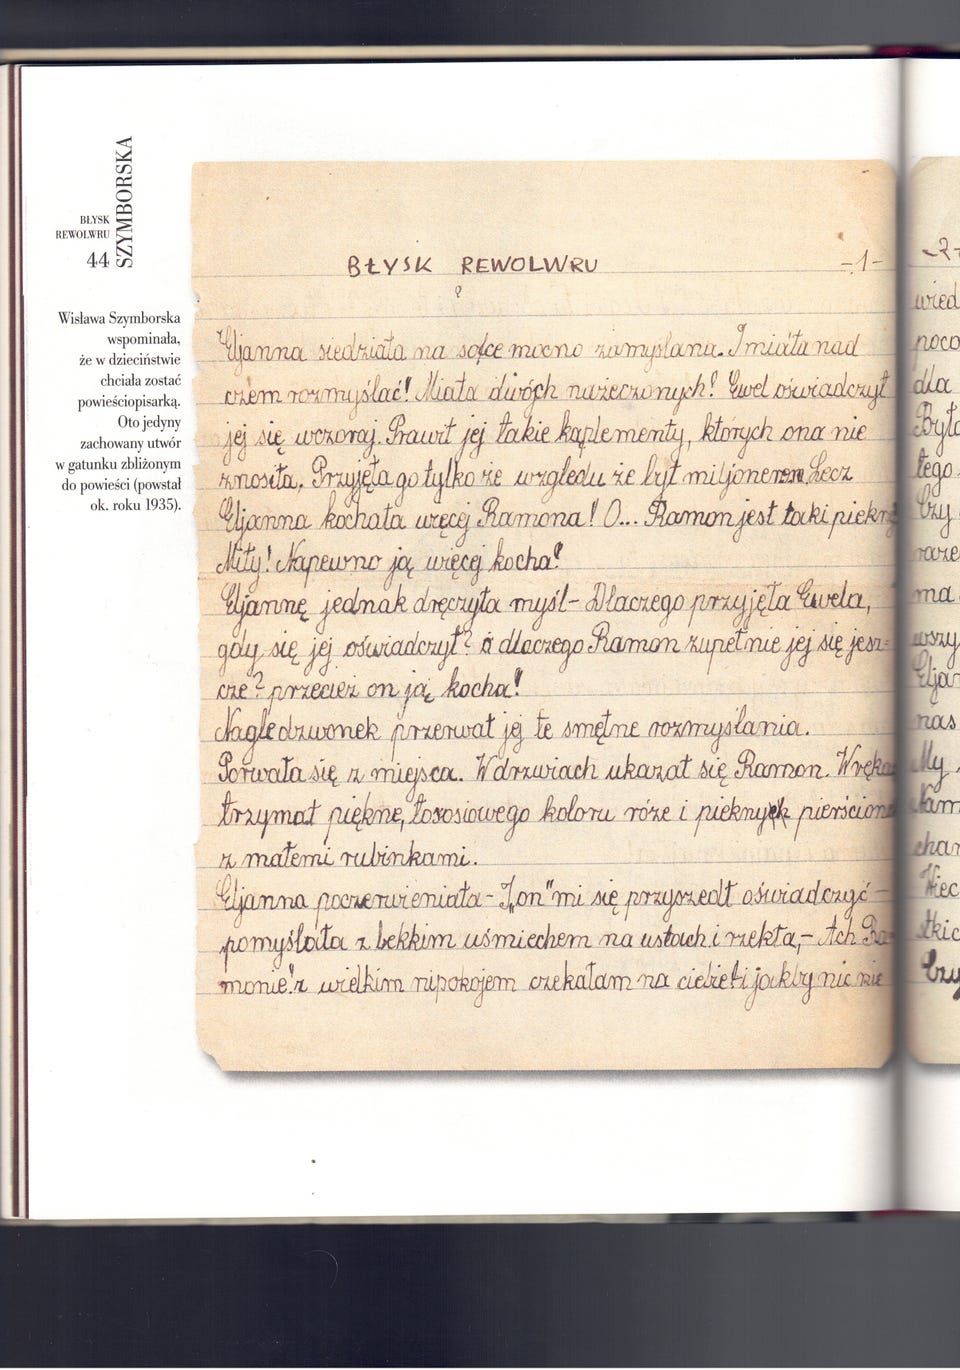 SZYMBORSKA
BŁYSK
REWOLWRU
44
Wisława Szymborska
wspominała,
że w dzieciństwie
chciała zostać
powieściopisarką.
Oto jedyny
zachowany utwór
w gatunku zbliżonym
do powieści (powstał
ok. roku 1935).
BŁYSK REWOLWRU
-1-
Eljanna siedziała na sofce mocno zamyślana. I miała nad
czem rozmyślać! Miała dwóch nażeczonych! Ewel oświadczył
jej się wczoraj. Prawił jej takie kąplementy, których ona nie
znosiła. Przyjęła go tylko ze względu że był miljonerem. Lecz
Eljanna kochała węcej Ramona! O... Ramon jest taki piękn
Miły! Napewno ją więcej kocha!
Eljannę jednak dręczyła myśl - Dlaczego przyjęła Ewela,
gdy się jej oświadczył? a dlaczego Ramon zupełnie jej się jesz-
cze? przecież on ją kocha!
Nagle dzwonek przerwał jej te smętne rozmyślania.
Porwała się z miejsca. W drzwiach ukazał się Ramon. W ręka
trzymał piękne, łososiowego koloru róże i piękny pierścione
z małemi rubinkami.
Eljanna poczerwieniała - I „on" mi się przyszedł oświadczyć -
pomyślała z lekkim uśmiechem na ustach i rzekła, - Ach Ra-
monie! z wielkim nipokojem czekałam na ciebie! i jakby nic nie
-2-
wied
poco
dla
Było
tego
Czy
raze
ma
wszy
Eljan
nas
My
Nam
chan
Wiec
stkic
Czy